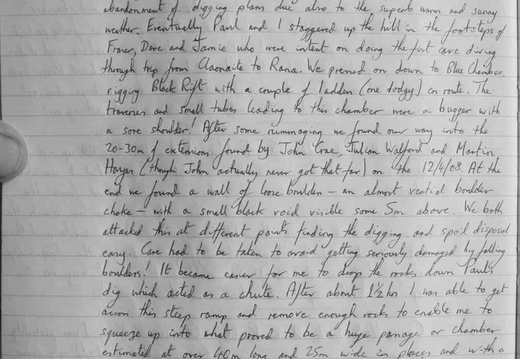 abandonment of digging plans due also to the superb warm and sunny
weather. Eventually Paul and I staggered up the hill in the footsteps of
Fraser, Dave and Jamie who were intent on doing the first cave diving
through trip from Claonaite to Rana. We pressed on down to Black Rift
rigging Black Rift with a couple of ladders (one dodgy) en route. The
traverses and small tubes leading to this chamber were a bugger with
a sore shoulder! After some rummaging we found our way into the
20-30m of extension found by John Crae, Julian Walford and Martin
Hayes (though John actually never got that far) on the 12/4/08. At the
end we found a wall of loose boulders - an almost vertical boulder
choke - with a small black void visible some 5m above. We both
attacked this at different points finding the digging and spoil disposal
easy. Care had to be taken to avoid getting seriously damaged by falling
boulders! It became easier for me to drop the rocks down Paul's
dig which acted as a chute. After about 1½ hrs I was able to get
across this steep ramp and remove enough rocks to enable me to
squeeze up into what proved to be a huge passage or chamber
estimated at over 45m long and 25m wide in places and with a